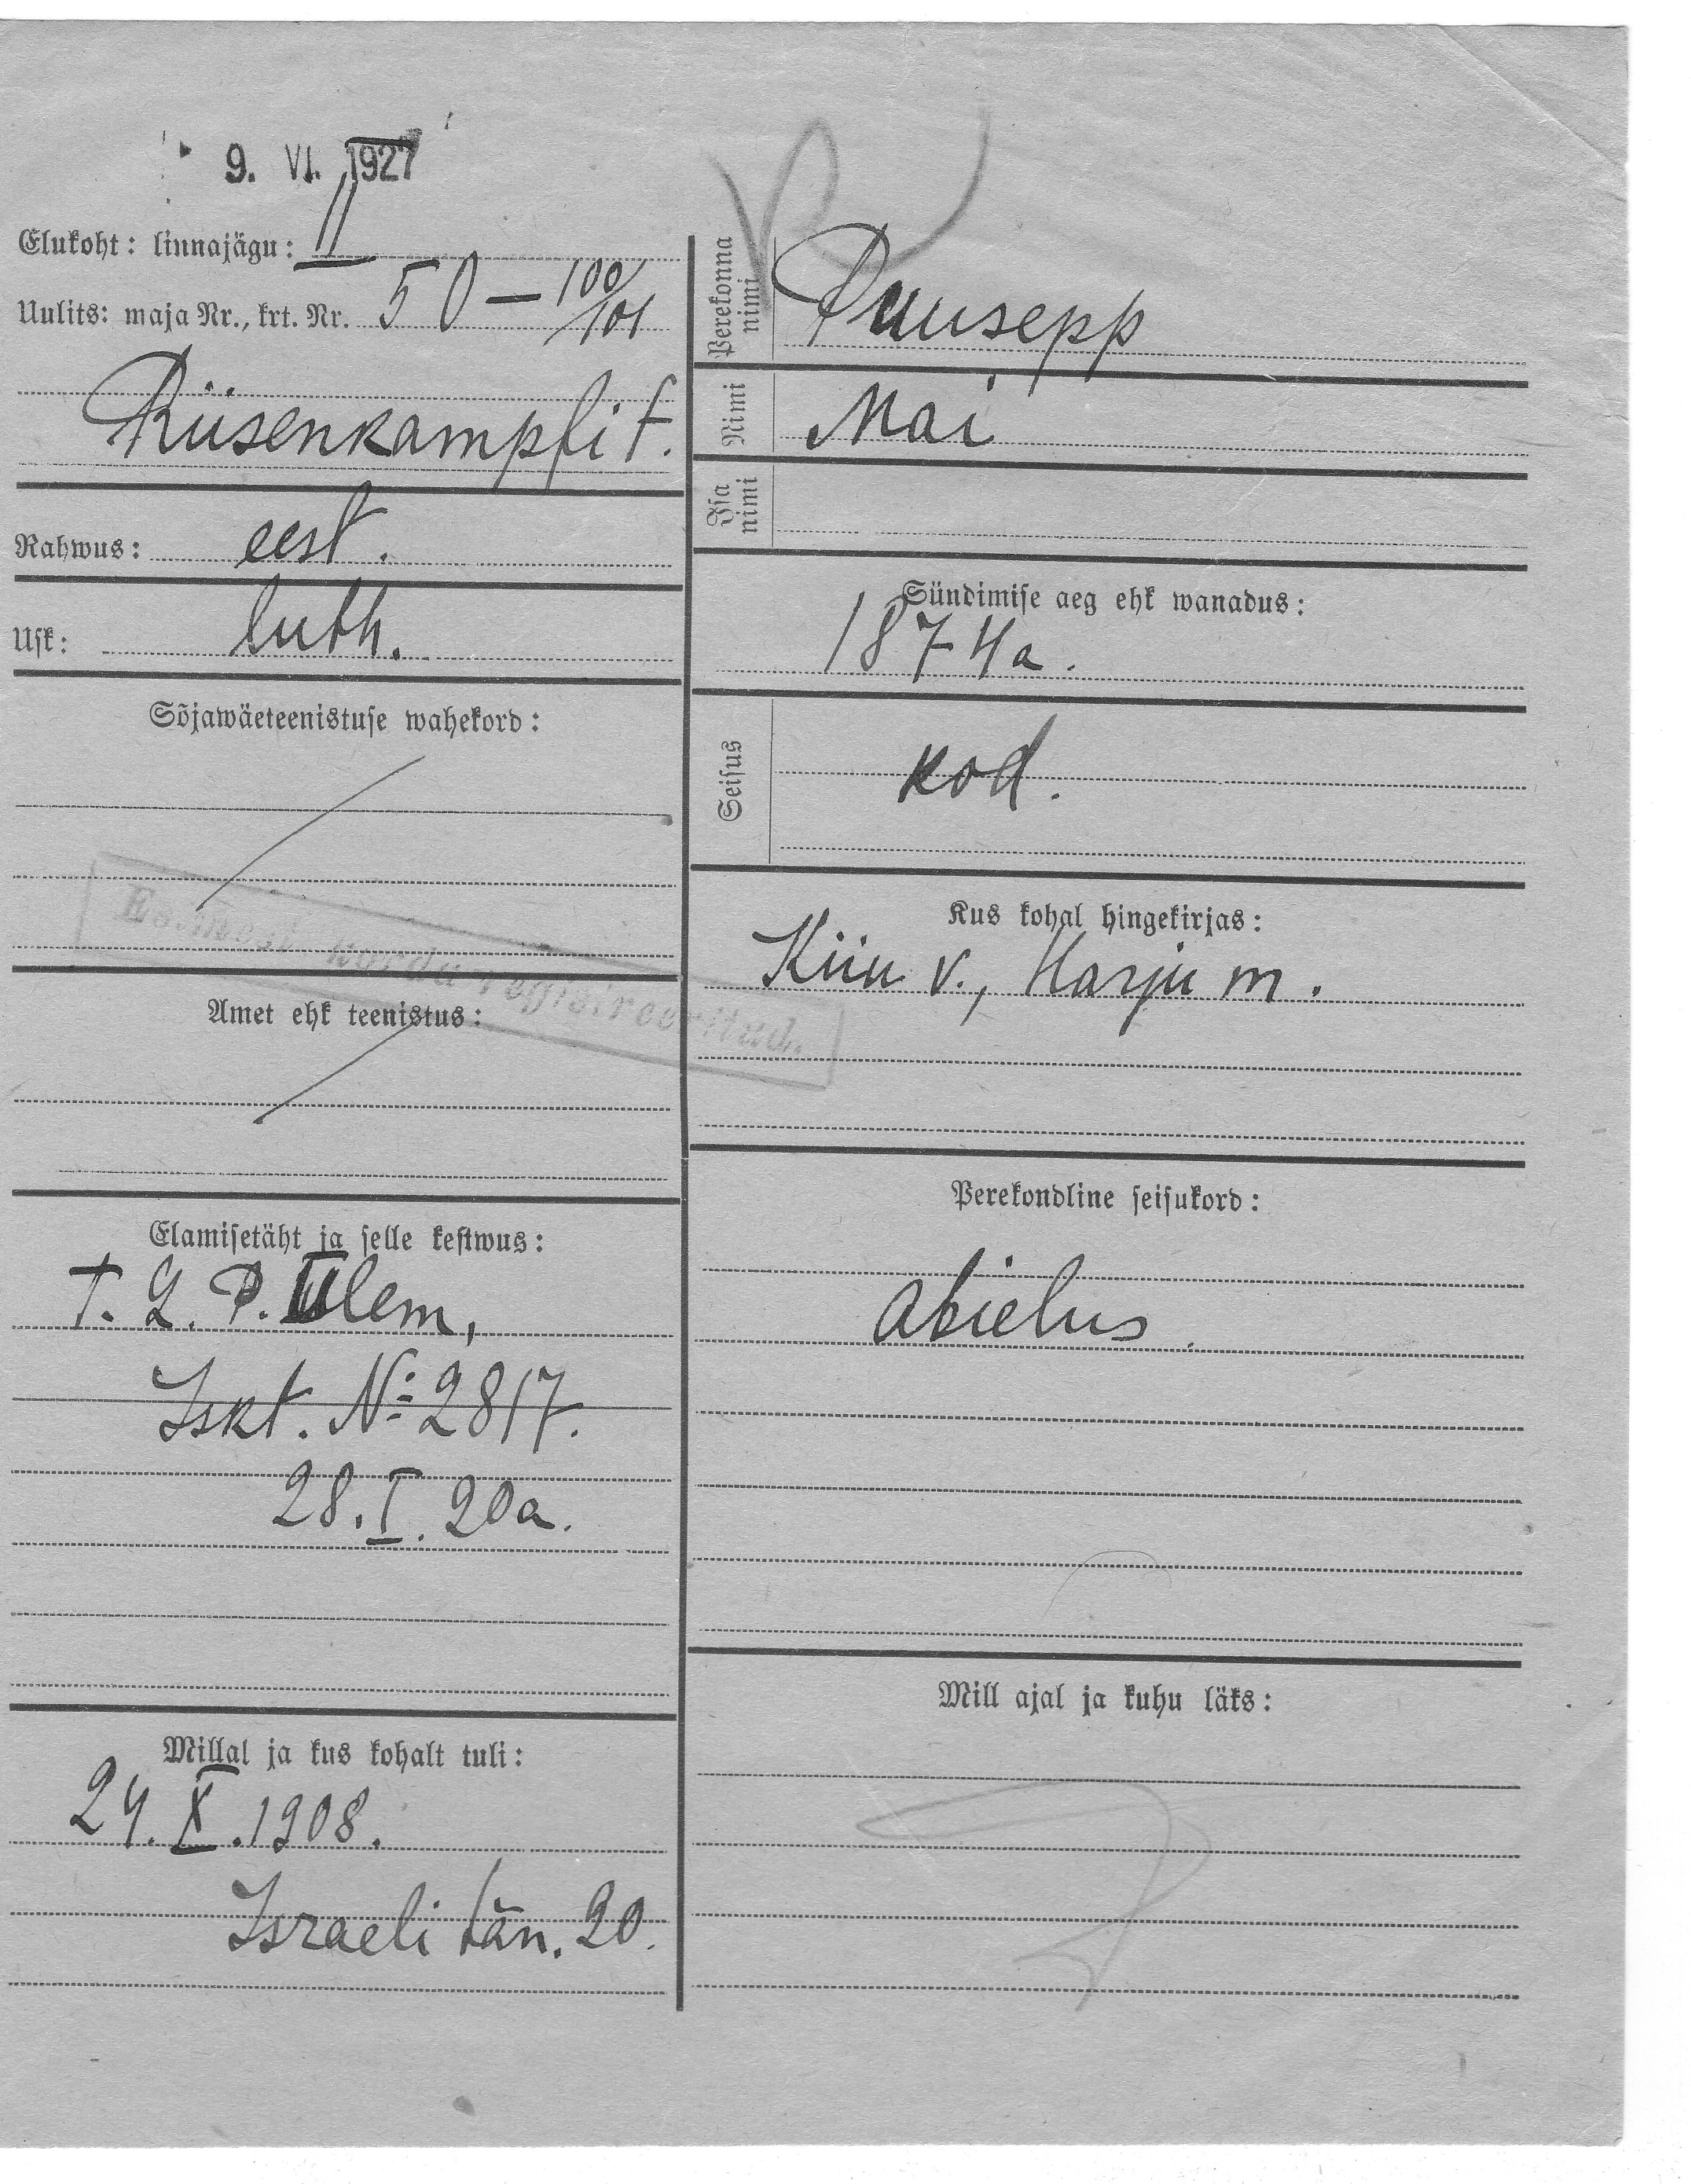 9. VI. 1927
Elukoht: linnajägu: II
Uulits: maja Nr., krt. Nr. 50 — 100/101
Rüsenkampfi t.
Rahwus: eest.
Usk: luth.
Sõjawäeteenistuse wahekord:
Esimest korda registreeritud.
Amet ehk teenistus:
Elamisetäht ja selle kestwus:
T. L. P. Ülem,
Iskt. № 2817.
28. I. 20a.
Millal ja kus kohalt tuli:
24. X. 1908.
Israeli tän. 20.
Perekonna nimi Puusepp
Nimi Mai
Isa nimi
Sündimise aeg ehk wanadus:
1874a.
Seisus kod.
Kus kohal hingekirjas:
Kiiu v., Harju m.
Perekondline seisukord:
abielus.
Mill ajal ja kuhu läks: